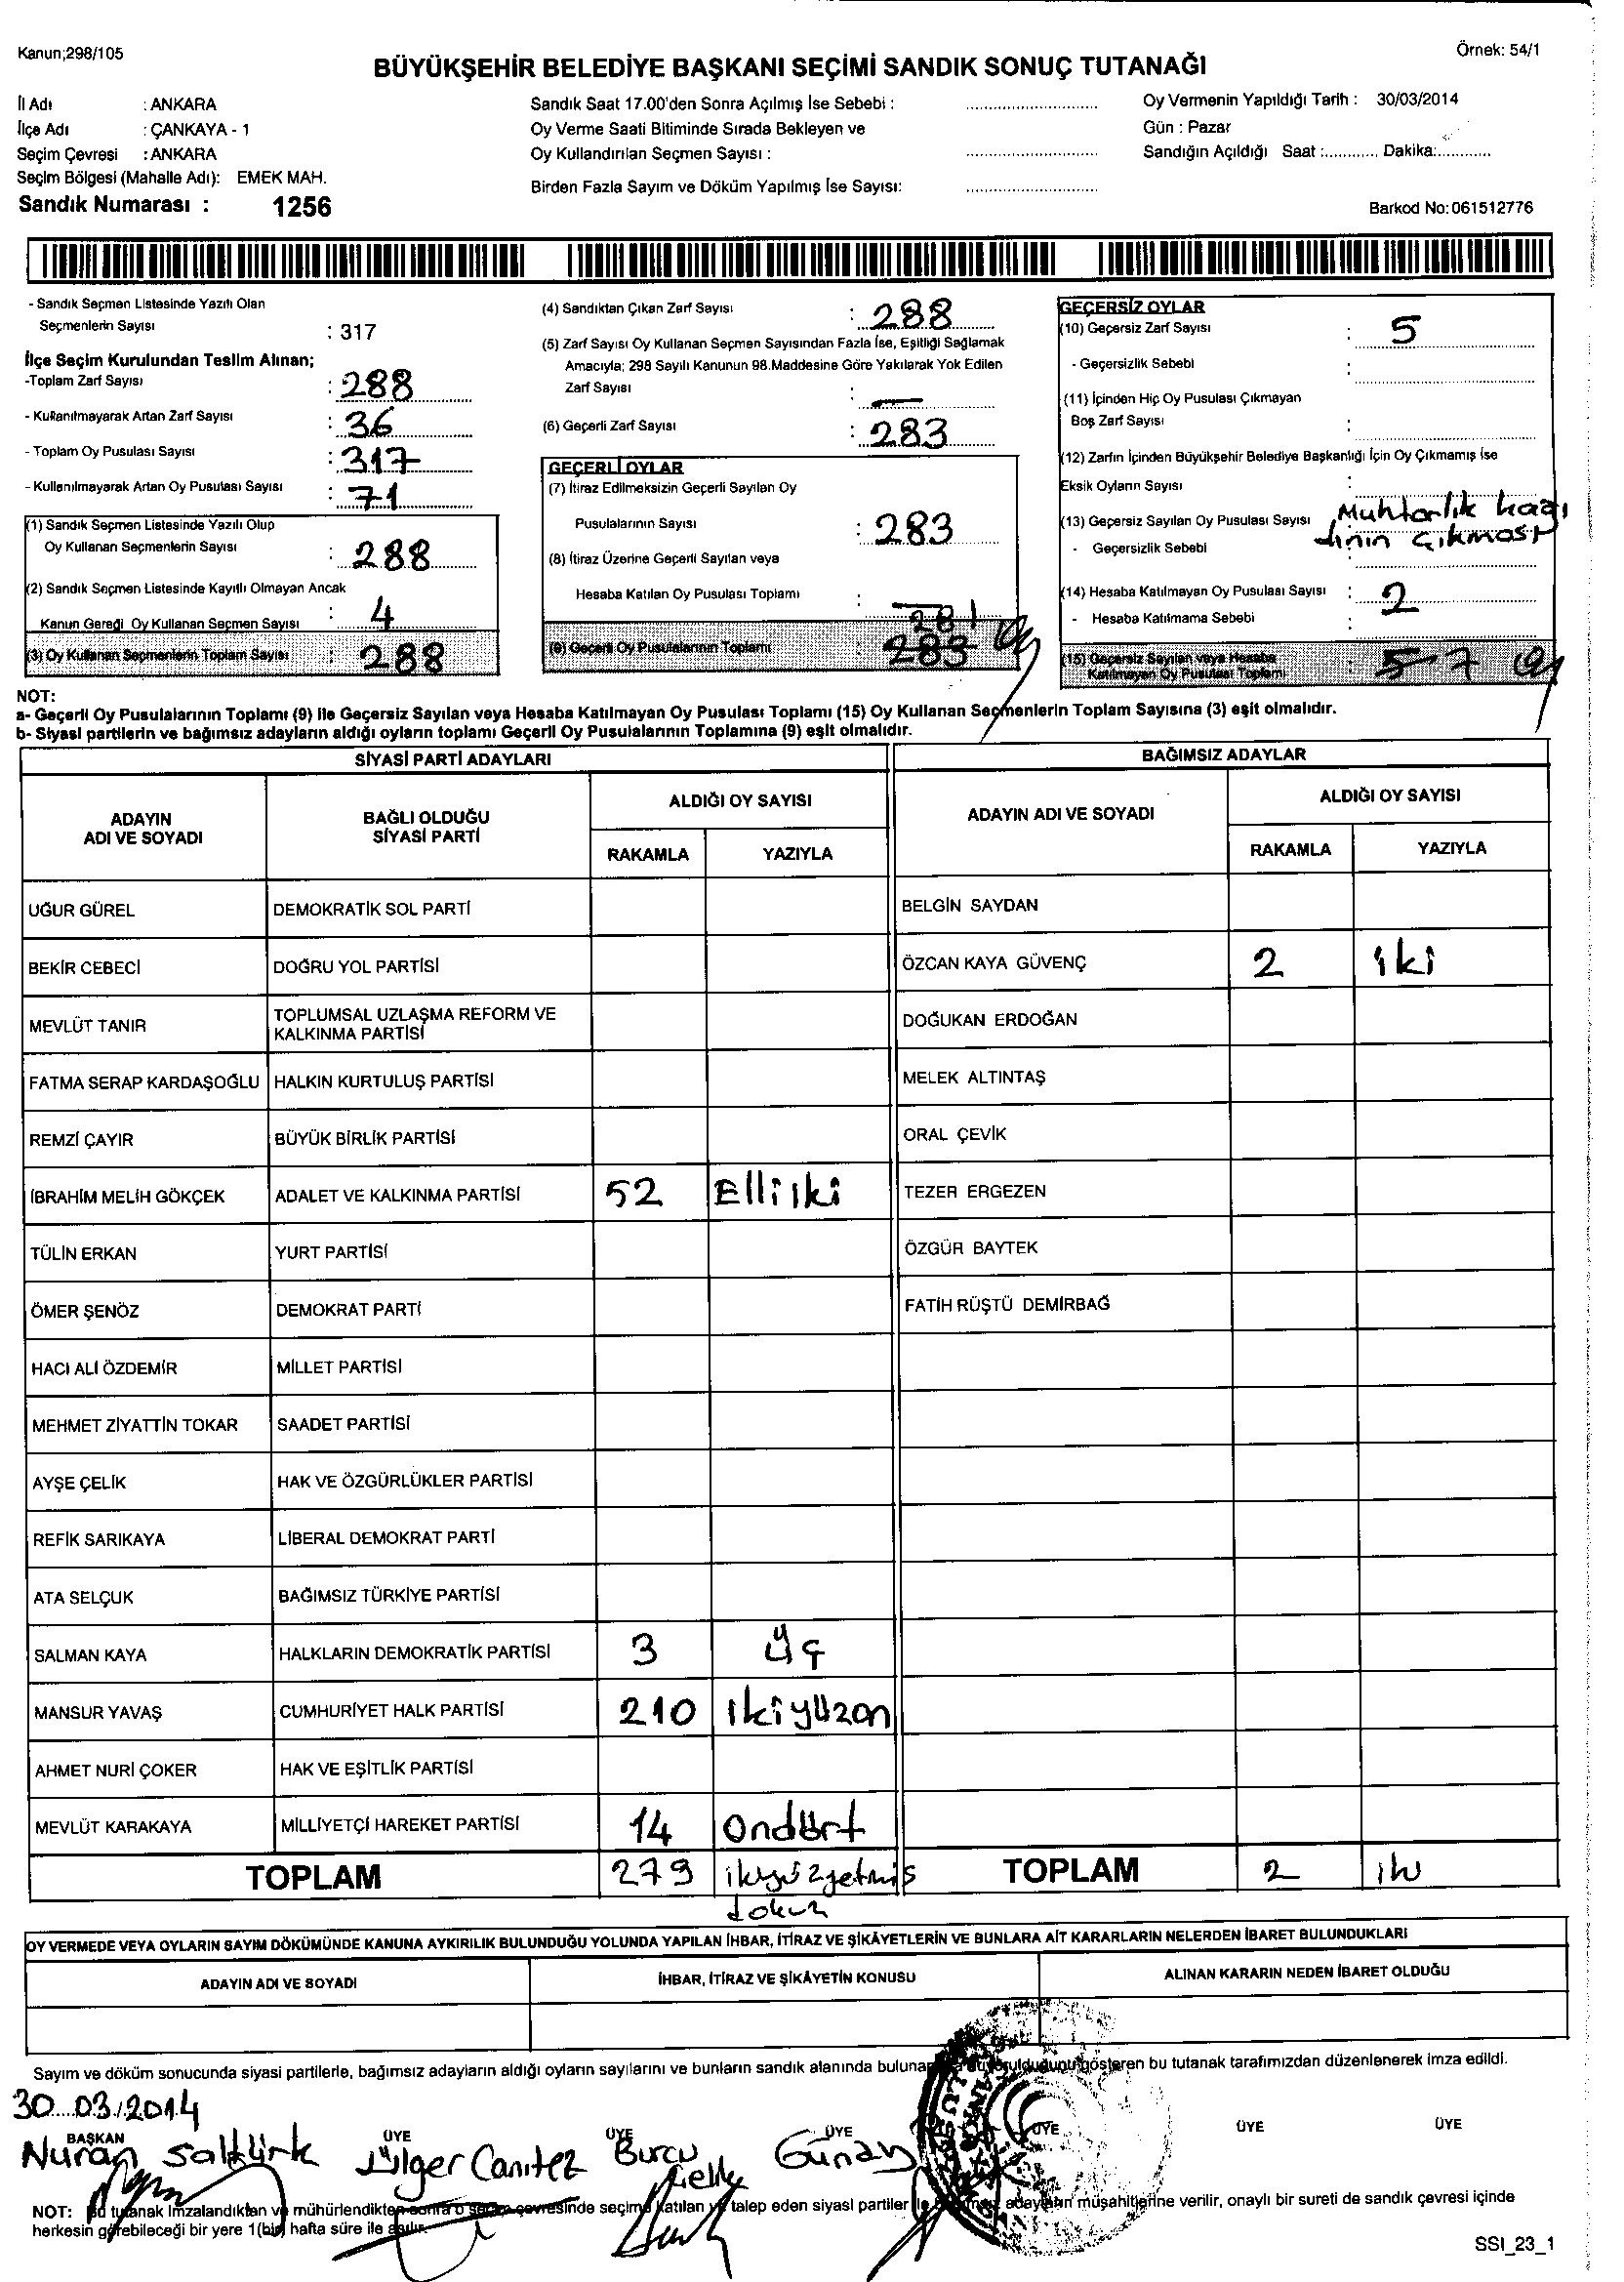 Kanun;298/105
Örnek: 54/1
BÜYÜKŞEHİR BELEDİYE BAŞKANI SEÇİMİ SANDIK SONUÇ TUTANAĞI
İl Adı : ANKARA
İlçe Adı : ÇANKAYA - 1
Seçim Çevresi : ANKARA
Seçim Bölgesi (Mahalle Adı): EMEK MAH.
Sandık Numarası : 1256
Sandık Saat 17.00'den Sonra Açılmış İse Sebebi :
Oy Verme Saati Bitiminde Sırada Bekleyen ve
Oy Kullandırılan Seçmen Sayısı :
Birden Fazla Sayım ve Döküm Yapılmış İse Sayısı:
Oy Vermenin Yapıldığı Tarih : 30/03/2014
Gün : Pazar
Sandığın Açıldığı Saat :............ Dakika:............
Barkod No:061512776
- Sandık Seçmen Listesinde Yazılı Olan
Seçmenlerin Sayısı : 317
İlçe Seçim Kurulundan Teslim Alınan;
-Toplam Zarf Sayısı : 288
- Kullanılmayarak Artan Zarf Sayısı : 36
- Toplam Oy Pusulası Sayısı : 317
- Kullanılmayarak Artan Oy Pusulası Sayısı : 71
(1) Sandık Seçmen Listesinde Yazılı Olup
Oy Kullanan Seçmenlerin Sayısı : 288
(2) Sandık Seçmen Listesinde Kayıtlı Olmayan Ancak
Kanun Gereği Oy Kullanan Seçmen Sayısı : 4
(3) Oy Kullanan Seçmenlerin Toplam Sayısı : 288
(4) Sandıktan Çıkan Zarf Sayısı : 288
(5) Zarf Sayısı Oy Kullanan Seçmen Sayısından Fazla İse, Eşitliği Sağlamak
Amacıyla; 298 Sayılı Kanunun 98.Maddesine Göre Yakılarak Yok Edilen
Zarf Sayısı : —
(6) Geçerli Zarf Sayısı : 283
GEÇERLİ OYLAR
(7) İtiraz Edilmeksizin Geçerli Sayılan Oy
Pusulalarının Sayısı : 283
(8) İtiraz Üzerine Geçerli Sayılan veya
Hesaba Katılan Oy Pusulası Toplamı : —
281
(9) Geçerli Oy Pusulalarının Toplamı : 283
GEÇERSİZ OYLAR
(10) Geçersiz Zarf Sayısı : 5
- Geçersizlik Sebebi :
(11) İçinden Hiç Oy Pusulası Çıkmayan
Boş Zarf Sayısı :
(12) Zarfın İçinden Büyükşehir Belediye Başkanlığı İçin Oy Çıkmamış İse
Eksik Oyların Sayısı :
(13) Geçersiz Sayılan Oy Pusulası Sayısı Muhtarlık kağı
- Geçersizlik Sebebi dının çıkması
(14) Hesaba Katılmayan Oy Pusulası Sayısı : 2
- Hesaba Katılmama Sebebi :
(15) Geçersiz Sayılan veya Hesaba
Katılmayan Oy Pusulası Toplamı : 5 7
NOT:
a- Geçerli Oy Pusulalarının Toplamı (9) ile Geçersiz Sayılan veya Hesaba Katılmayan Oy Pusulası Toplamı (15) Oy Kullanan Seçmenlerin Toplam Sayısına (3) eşit olmalıdır.
b- Siyasi partilerin ve bağımsız adayların aldığı oyların toplamı Geçerli Oy Pusulalarının Toplamına (9) eşit olmalıdır.
SİYASİ PARTİ ADAYLARI
BAĞIMSIZ ADAYLAR
ADAYIN ADI VE SOYADI
BAĞLI OLDUĞU SİYASİ PARTİ
ALDIĞI OY SAYISI
RAKAMLA YAZIYLA
ADAYIN ADI VE SOYADI
ALDIĞI OY SAYISI
RAKAMLA YAZIYLA
UĞUR GÜREL DEMOKRATİK SOL PARTİ BELGİN SAYDAN
BEKİR CEBECİ DOĞRU YOL PARTİSİ ÖZCAN KAYA GÜVENÇ 2 iki
MEVLÜT TANIR TOPLUMSAL UZLAŞMA REFORM VE KALKINMA PARTİSİ DOĞUKAN ERDOĞAN
FATMA SERAP KARDAŞOĞLU HALKIN KURTULUŞ PARTİSİ MELEK ALTINTAŞ
REMZİ ÇAYIR BÜYÜK BİRLİK PARTİSİ ORAL ÇEVİK
İBRAHİM MELİH GÖKÇEK ADALET VE KALKINMA PARTİSİ 52 Elliiki TEZER ERGEZEN
TÜLİN ERKAN YURT PARTİSİ ÖZGÜR BAYTEK
ÖMER ŞENÖZ DEMOKRAT PARTİ FATİH RÜŞTÜ DEMİRBAĞ
HACI ALİ ÖZDEMİR MİLLET PARTİSİ
MEHMET ZİYATTİN TOKAR SAADET PARTİSİ
AYŞE ÇELİK HAK VE ÖZGÜRLÜKLER PARTİSİ
REFİK SARIKAYA LİBERAL DEMOKRAT PARTİ
ATA SELÇUK BAĞIMSIZ TÜRKİYE PARTİSİ
SALMAN KAYA HALKLARIN DEMOKRATİK PARTİSİ 3 Üç
MANSUR YAVAŞ CUMHURİYET HALK PARTİSİ 210 ikiyüzon
AHMET NURİ ÇOKER HAK VE EŞİTLİK PARTİSİ
MEVLÜT KARAKAYA MİLLİYETÇİ HAREKET PARTİSİ 14 Ondört
TOPLAM 279 ikiyüzyetmiş TOPLAM 2 iki
dokuz
OY VERMEDE VEYA OYLARIN SAYIM DÖKÜMÜNDE KANUNA AYKIRILIK BULUNDUĞU YOLUNDA YAPILAN İHBAR, İTİRAZ VE ŞİKÂYETLERİN VE BUNLARA AİT KARARLARIN NELERDEN İBARET BULUNDUKLARI
ADAYIN ADI VE SOYADI İHBAR, İTİRAZ VE ŞİKÂYETİN KONUSU ALINAN KARARIN NEDEN İBARET OLDUĞU
Sayım ve döküm sonucunda siyasi partilerle, bağımsız adayların aldığı oyların sayılarını ve bunların sandık alanında gösteren bu tutanak tarafımızdan düzenlenerek imza edildi.
30.03.2014
BAŞKAN ÜYE ÜYE ÜYE ÜYE ÜYE ÜYE
Nuran Saltürk Ülger Canıtez Burcu Günay
NOT: Bu tutanak İmzalandıktan ve mühürlendikten sonra o seçim çevresinde seçime katılan ve talep eden siyasi partiler adayların müşahitlerine verilir, onaylı bir sureti de sandık çevresi içinde
herkesin görebileceği bir yere 1(bir) hafta süre ile asılır.
SSI_23_1